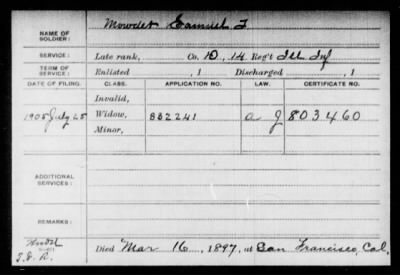 NAME OF SOLDIER: Mowder Samuel F
SERVICE: Late rank, Co. D, 14 Reg't Ill Inf
TERM OF SERVICE: Enlisted , 1 Discharged , 1
DATE OF FILING. CLASS. APPLICATION NO. LAW. CERTIFICATE NO.
Invalid,
1905 July 25 Widow, 832241 a g 803460
Minor,
ADDITIONAL SERVICES:
REMARKS:
Died Mar 16, 1897, at San Francisco, Cal.